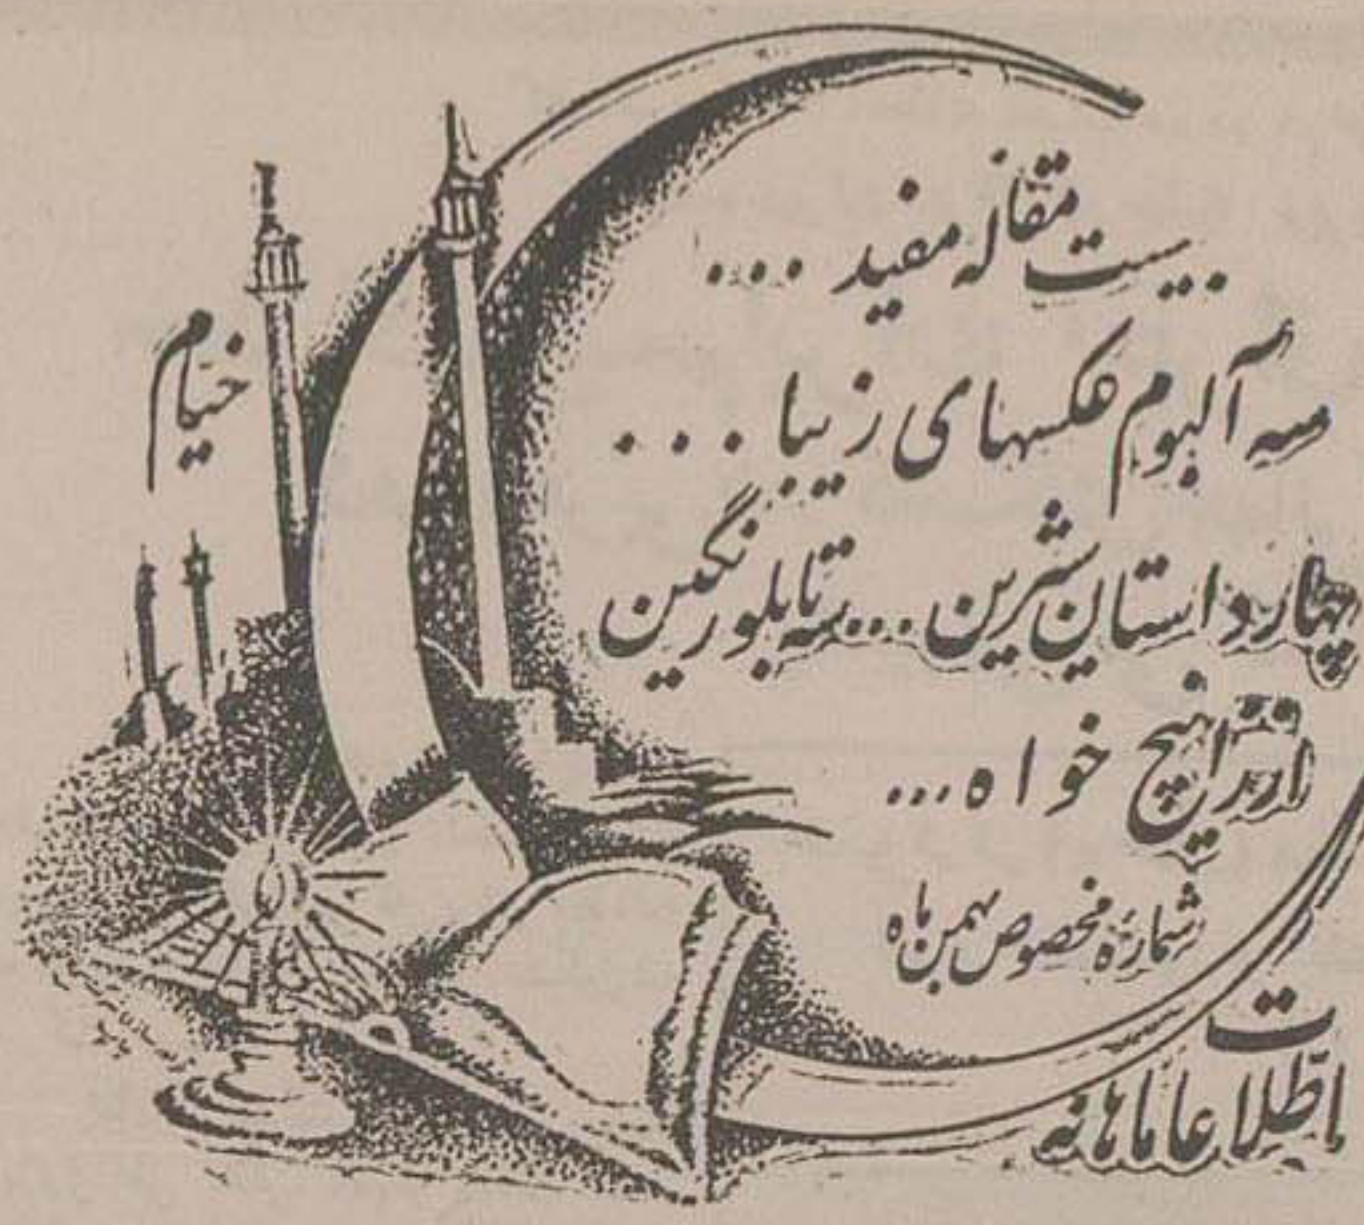 بیست مقاله مفید ...
سه آلبوم عکسهای زیبا ...
چهار داستان شیرین ... سه تابلو رنگین
خواه ...
شماره مخصوص بهمن ماه
اطلاعات ماهانه
خیام